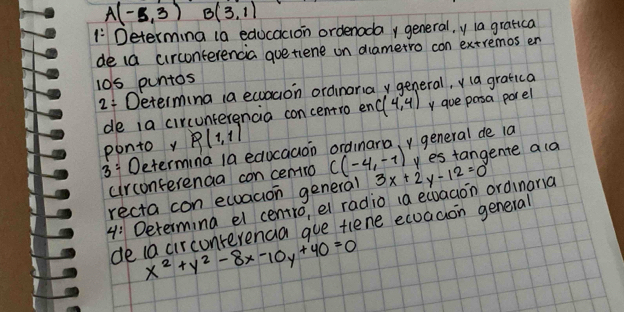 A(-3,3) B(3,1)
1: Determina la educación ordenada y general, y la grafica
de la circonferencia que tiene un diametro con extremos en
los puntos
2: Determina la ecuación ordinaria y general, y la grafica
de la circunferencia con centro en C(4,4) y que pasa por el
punto y P(1,1)
3: Determina la educación ordinara y general de la
circonferencia con centro C(-4,-1) y es tangente a la
recta con ecuación general 3x+2y-12=0
4: Determina el centro, el radio la ecuación ordinaria
de la circunferencia que tiene ecuación general
x²+y²-8x-10y+40=0